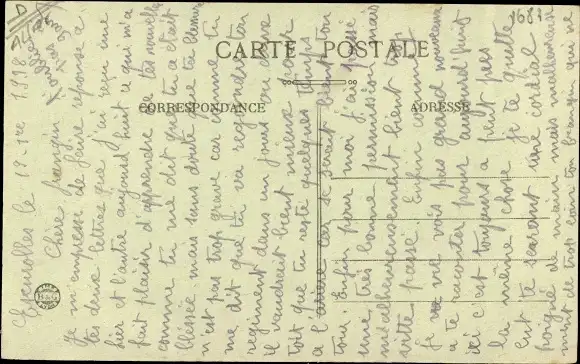 CARTE POSTALE
CORRESPONDANCE
ADRESSE
1681
D
Escurolles le 12-1re 1918
Chère frangin
Je m'empresse de faire réponse a
tes deux lettres que j'ai reçu une
hier et l'autre aujourd'huit a qui m'a
fait plaisir d'apprendre de tes nouvelles
comme tu me dit que tu a était
blessée mais sans doute que ta blessure
n'est pas trop grave car comme tu
me dit que tu va rejondre ton
regiment dans un jours ou deux
il vaudrait bient mieux pour
toit que tu reste quelques temps
a l'arière car se serait bientôt ton
tour. Enfin pour moi j'ai passé
une très bonne permission mais
malheureusement bient trop
vitte passé. Enfin comme
je ne vois pas grand nouveaux
a te raconter pour aujourd'huit
ici c'est toujours a peint pres
la même chose je te quitte
ent te serrant une cordial
poigné de main mais malheureuse
ment de trop loin ton frangin qui ne